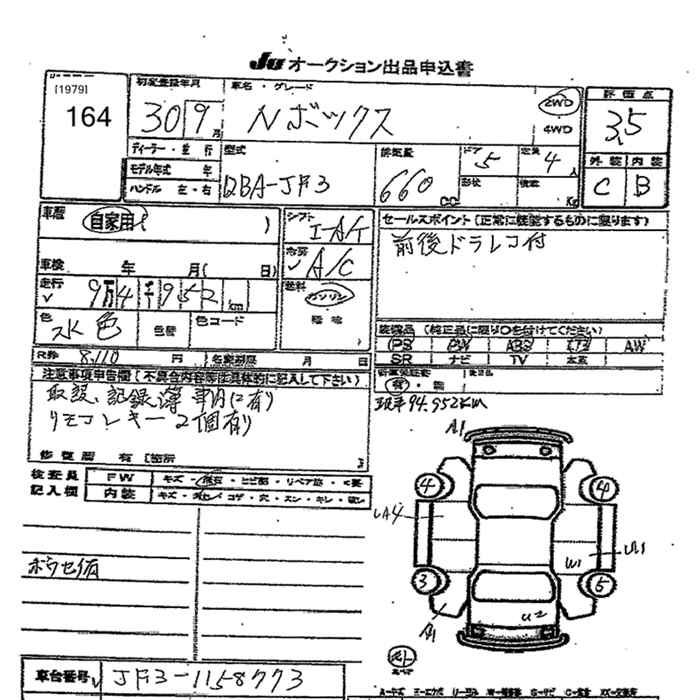 JU オークション出品申込書
[1979]
164
初度登録年月
30 9月
車名・グレード
Nボックス
2WD
4WD
評価点
3.5
外装 内装
C B
ディーラー・並行
モデル年式 年
ハンドル 左・右
型式
DBA-JF3
排気量
660 CC
ドア 5
定員 4人
形状
積載 Kg
車歴
自家用( )
車検 年 月( 日)
走行
9万4千952km
色
水色
色替
色コード
シフト
I-A/T
冷房
A/C
燃料
ガソリン
軽油
セールスポイント(正常に機能するものに限ります)
前後ドラレコ付
装備品 (純正品に限り○を付けてください)
PS PW ABS AW
SR ナビ TV 本革
R券 8,110 円
名変期限 月 日
新車保証書
有・無
注意事項申告欄(不具合内容等は具体的に記入して下さい)
取説、記録簿 車内に有り
リモコンキー2個有り
修復歴 有 [箇所 ]
現車94,952KM
検査員
記入欄
FW
内装
キズ・飛石・ヒビ割・リペア跡・X要
A1
4
4
UA4
W1
3
5
A1
U2
車台番号
JF3-1158773